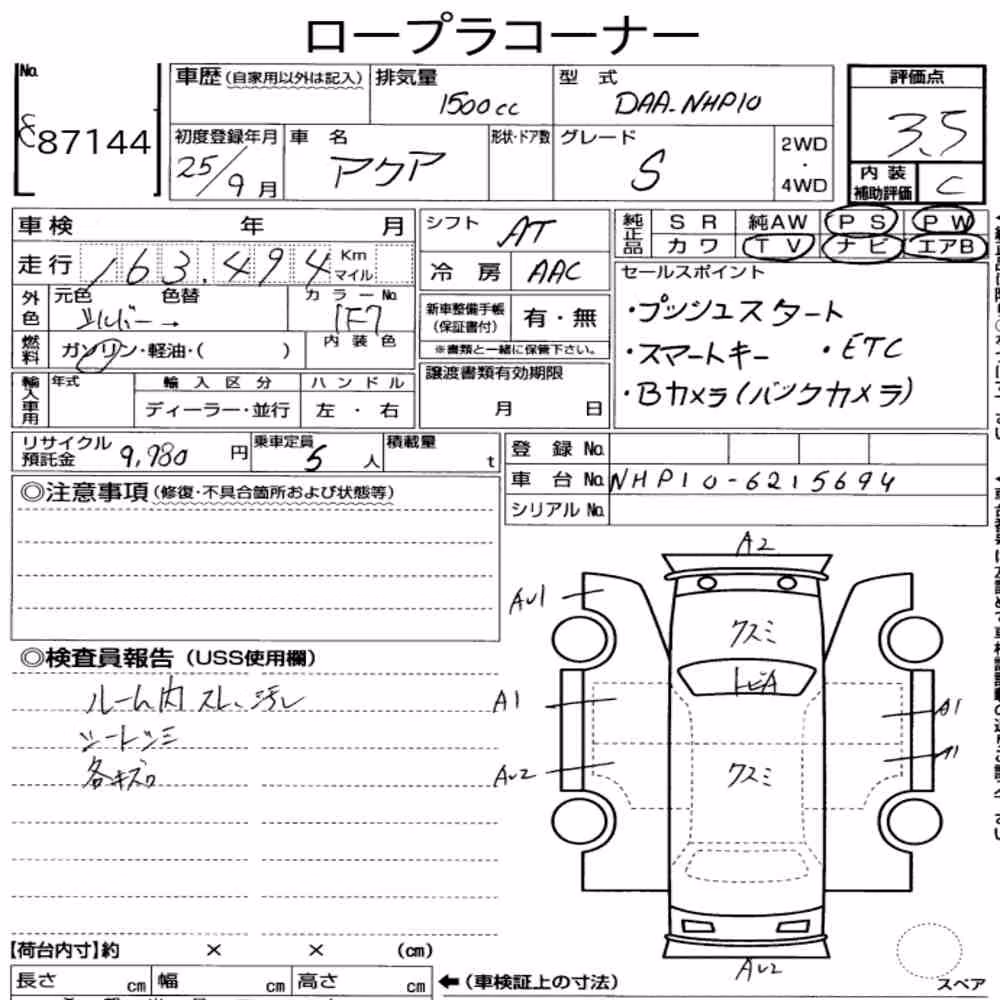 ロープラコーナー
No.
87144
車歴(自家用以外は記入) 排気量 1500cc 型式 DAA-NHP10
評価点 3.5
初度登録年月 25/9月 車名 アクア 形状・ドア数 グレード S 2WD・4WD
内装補助評価 C
車検 年 月
シフト AT
純正品 SR 純AW PS PW
カワ TV ナビ エアB
走行 163,494 Km マイル
冷房 AAC
セールスポイント
外色 元色 シルバー→ 色替 カラーNo. 1F7
新車整備手帳(保証書付) 有・無
・プッシュスタート
燃料 ガソリン・軽油・( ) 内装色
※書類と一緒に保管下さい。
・スマートキー ・ETC
輸入車用 年式 輸入区分 ハンドル
譲渡書類有効期限
・Bカメラ(バックカメラ)
ディーラー・並行 左・右
月 日
リサイクル預託金 9,980円 乗車定員 5人 積載量 t
登録No.
車台No. NHP10-6215694
シリアルNo.
◎注意事項(修復・不具合箇所および状態等)
A2
AU1
クスミ
◎検査員報告(USS使用欄)
トビA
ルーム内スレ、汚レ
A1
A1
シートシミ
AU2
クスミ
各キズ
【荷台内寸】約 × × (cm)
AU2
長さ cm 幅 cm 高さ cm
←(車検証上の寸法)
スペア